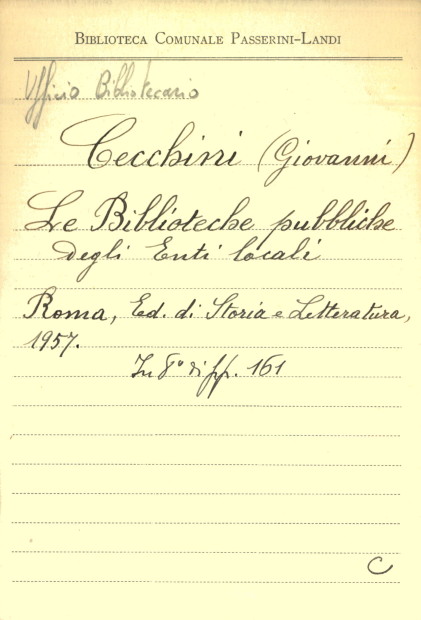 BIBLIOTECA COMUNALE PASSERINI-LANDI
Ufficio Bibliotecario
Cecchini (Giovanni)
Le Biblioteche pubbliche
degli Enti locali
Roma, Ed. di Storia e Letteratura,
1957.
In 8° di pp. 161
C